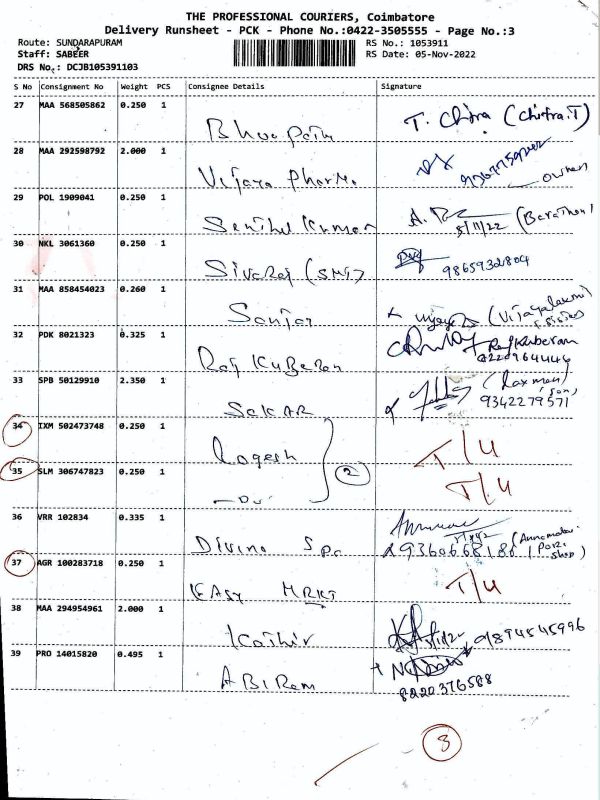 THE PROFESSIONAL COURIERS, Coimbatore
Delivery Runsheet - PCK - Phone No.:0422-3505555 - Page No.:3
Route: SUNDARAPURAM RS No.: 1053911
Staff: SABEER RS Date: 05-Nov-2022
DRS No.: DCJB105391103
S No Consignment No Weight PCS Consignee Details Signature
27 MAA 568505862 0.250 1
T. Chitra (Chitra.T)
28 MAA 292598792 2.000 1
Vijaya Pharma owner
29 POL 1909041 0.250 1
Senthil Kumar 5/11/22
30 NKL 3061360 0.250 1
Sivaraj (SMS) 9865932804
31 MAA 858454023 0.260 1
Sanjar (Vijayalaxmi)
32 PDK 8021323 0.325 1
Raj Kuberan Raj Kuberan
33 SPB 50129910 2.350 1
SEKAR (Laxman) 9342279571
34 IXM 502473748 0.250 1
Logesh T/U
35 SLM 306747823 0.250 1 2
— Do — T/U
36 VRR 102834 0.335 1
Divine Spa
37 AGR 100283718 0.250 1
EASY MRKT T/U
38 MAA 294954961 2.000 1
Kathir 9894545996
39 PRO 14015820 0.495 1
ABI Ram 8220376588
3